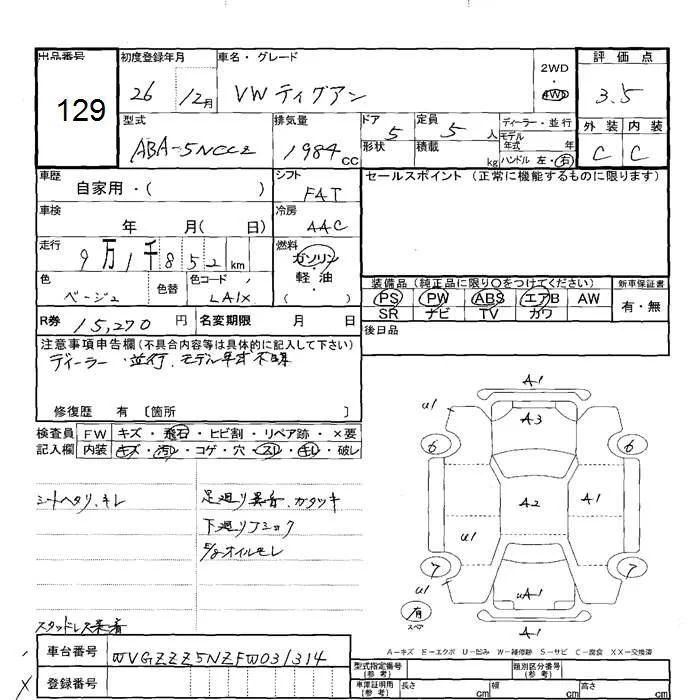 出品番号 初度登録年月 車名・グレード 評価点
129
26 12月 VW ティグアン 2WD ・ 4WD 3.5
型式 排気量 ドア 定員 ディーラー・並行 外装 内装
ABA-5NCCZ 1984 CC 5 5 人 モデル年式 年 C C
形状 積載 kg ハンドル 左・右
車歴 シフト セールスポイント(正常に機能するものに限ります)
自家用・( ) FAT
車検 冷房
年 月( 日) AAC
走行 燃料
9万1千852 km ガソリン・軽油・( )
色 色替 色コード 装備品(純正品に限り○をつけてください) 新車保証書
ベージュ LA1X PS PW ABS エアB AW 有・無
SR ナビ TV カワ
R券 15,270 円 名変期限 月 日 後日品
注意事項申告欄(不具合内容等は具体的に記入して下さい)
ディーラー・並行、モデル年式不明
修復歴 有 〔箇所 〕
検査員 FW キズ・飛石・ヒビ割・リペア跡・×要
記入欄 内装 キズ・汚レ・コゲ・穴・スレ・キレ・破レ
シートヘタリ、キレ 足廻り異音、ガタツキ
下廻りサビ
オイルモレ
スタッドレス装着
A1
u1 A3
6 6
A2 A1
u1
7 7
u1 uA1
有
スペア A1
A－キズ E－エクボ U－凹み W－補修跡 S－サビ C－腐食 XX－交換済
車台番号 WVGZZZ5NZFW031314
登録番号
型式指定番号(参考) 類別区分番号(参考)
車庫証明用(参考) 長さ cm 幅 cm 高さ cm